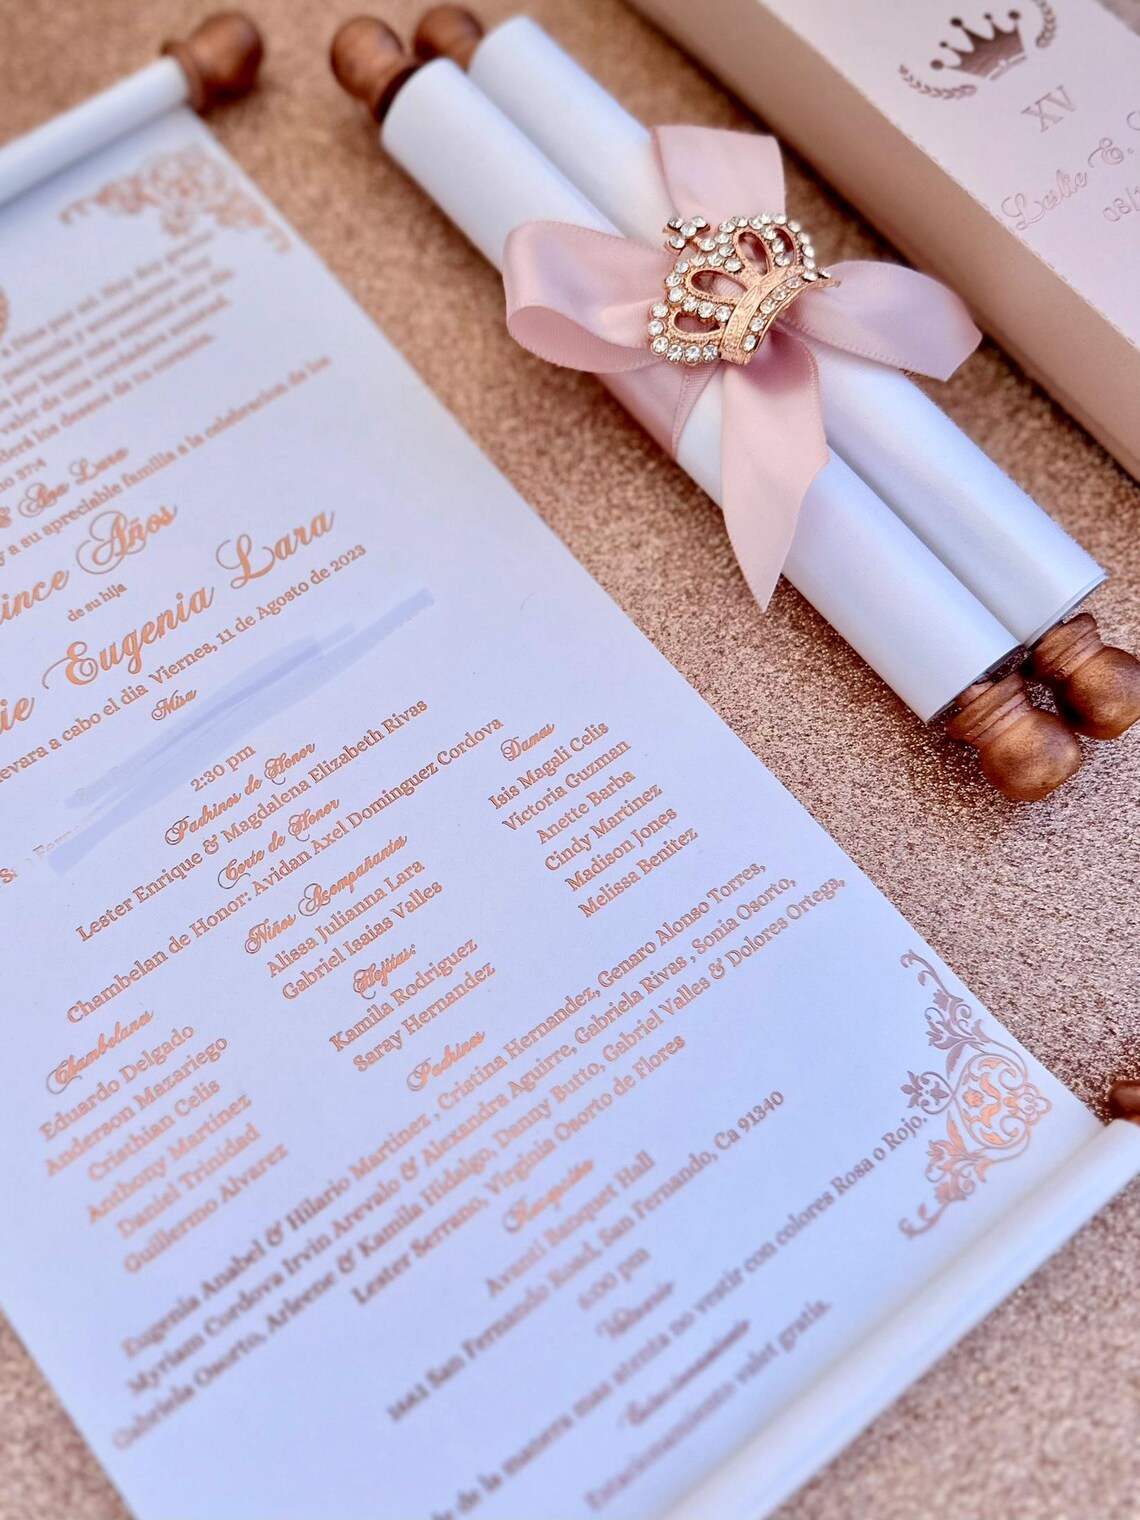 mi. No hay genio
valor de una verdadera amistad.
los deseos de tu corazón.
37:4
& Ana Lara
y a su apreciable familia a la celebracion de los
Años
de su hija
Eugenia Lara
a cabo el dia Viernes, 11 de Agosto de 2023
Misa
2:30 pm
Padrinos de Honor
Lester Enrique & Magdalena Elizabeth Rivas
Corte de Honor
Chambelan de Honor: Avidan Axel Dominguez Cordova
Niños Acompañantes
Alissa Julianna Lara
Gabriel Isaias Valles
Hojitas:
Kamila Rodriguez
Saray Hernandez
Damas
Isis Magali Celis
Victoria Guzman
Anette Barba
Cindy Martinez
Madison Jones
Melissa Benitez
Chambelanes
Eduardo Delgado
Anderson Mazariego
Cristhian Celis
Anthony Martinez
Daniel Trinidad
Guillermo Alvarez
Padrinos
Eugenia Anabel & Hilario Martinez , Cristina Hernandez, Genaro Alonso Torres,
Myriam Cordova Irvin Arevalo & Alexandra Aguirre, Gabriela Rivas , Sonia Osorto,
Gabriela Osorto, Arleene & Kamila Hidalgo, Danny Butto, Gabriel Valles & Dolores Ortega,
Lester Serrano, Virginia Osorto de Flores
Recepción
Avanti Banquet Hall
San Fernando Road, San Fernando, Ca 91340
6:00 pm
de la manera mas atenta no vestir con colores Rosa o Rojo.
Estacionamiento valet gratis.
XV
Leslie E.
08/